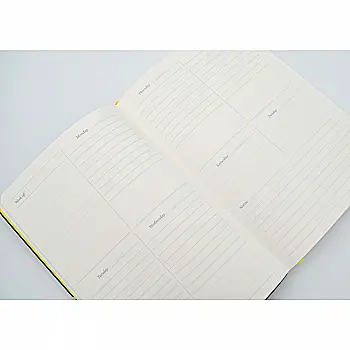 Week of
Monday
Tuesday
Wednesday
Thursday
Friday
Saturday
Sunday
Notes